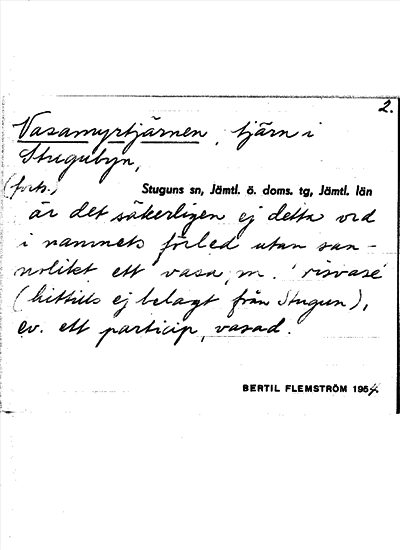 2.
Vasamyrtjärnen, tjärn i
Stugubyn,
(forts.) Stuguns sn, Jämtl. ö. doms. tg, Jämtl. län
är det säkerligen ej detta ord
i namnets förled utan san-
nolikt ett vasa, m. 'risvase'
(hittills ej belagt från Stugun),
ev. ett particip, vasad.
BERTIL FLEMSTRÖM 1954.